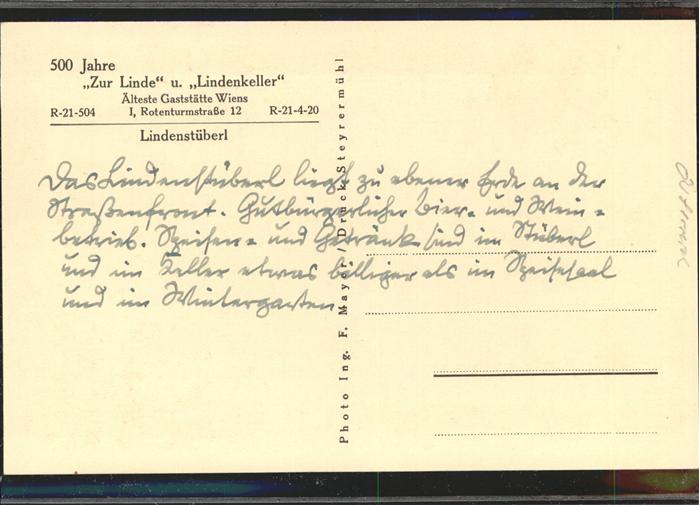 500 Jahre
„Zur Linde“ u. „Lindenkeller“
Älteste Gaststätte Wiens
R-21-504 I, Rotenturmstraße 12 R-21-4-20
Lindenstüberl
Das Lindenstüberl liegt zu ebener Erde an der
Straßenfront. Gutbürgerlicher Bier- und Wein-
betrieb. Speisen- und Getränk sind im Stüberl
und im Keller etwas billiger als im Speisesaal
und im Wintergarten.
Photo Ing. F. Mayer / Druck Steyrermühl